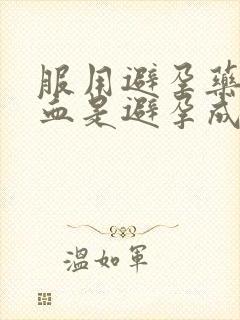 服用避孕药
血是避孕成
溫如軍